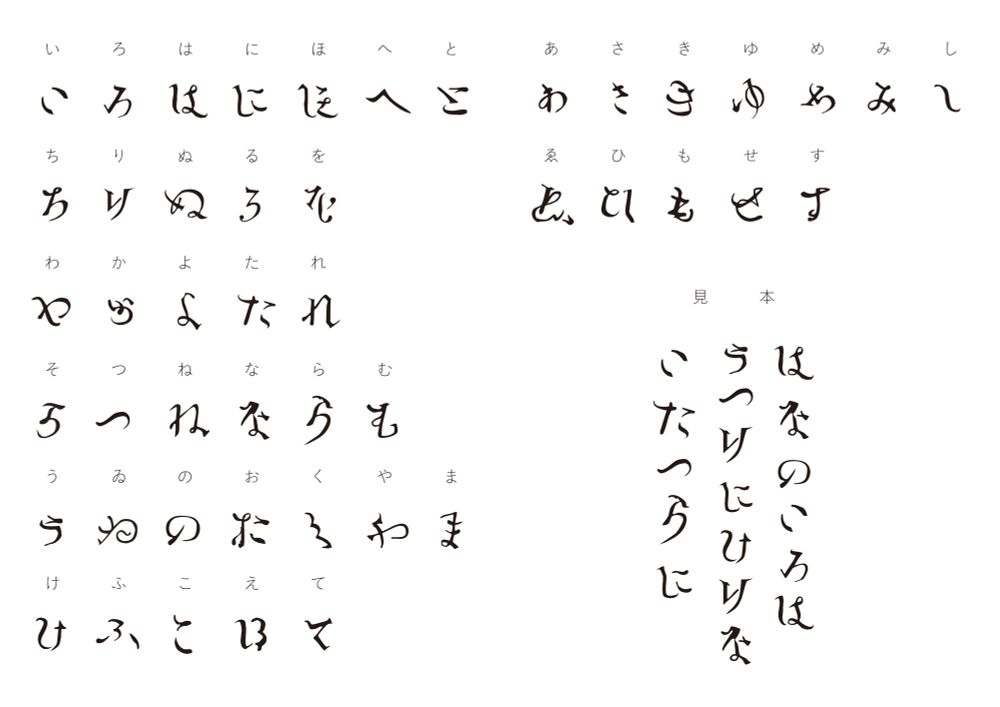 いろはにほへと
いろはにほへと
ちりぬるを
ちりぬるを
わかよたれ
わかよたれ
そつねならむ
そつねならむ
うゐのおくやま
うゐのおくやま
けふこえて
けふこえて
あさきゆめみし
あさきゆめみし
ゑひもせす
ゑひもせす
見本
はなのいろは
うつりにけりな
いたつらに